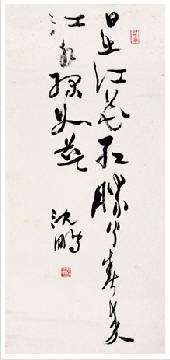 日出江花红胜火春来
江水绿如蓝
沈鹏